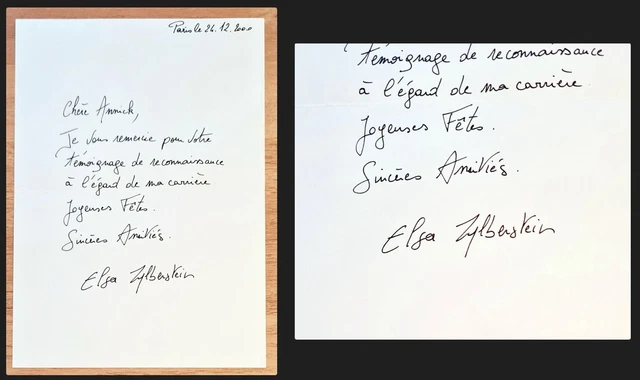 Paris le 24.12.2000
Chère Annick,
Je vous remercie pour votre
témoignage de reconnaissance
à l'égard de ma carrière
Joyeuses Fêtes.
Sincères Amitiés.
Elsa Zylberstein
témoignage de reconnaissance
à l'égard de ma carrière
Joyeuses Fêtes.
Sincères Amitiés.
Elsa Zylberstein